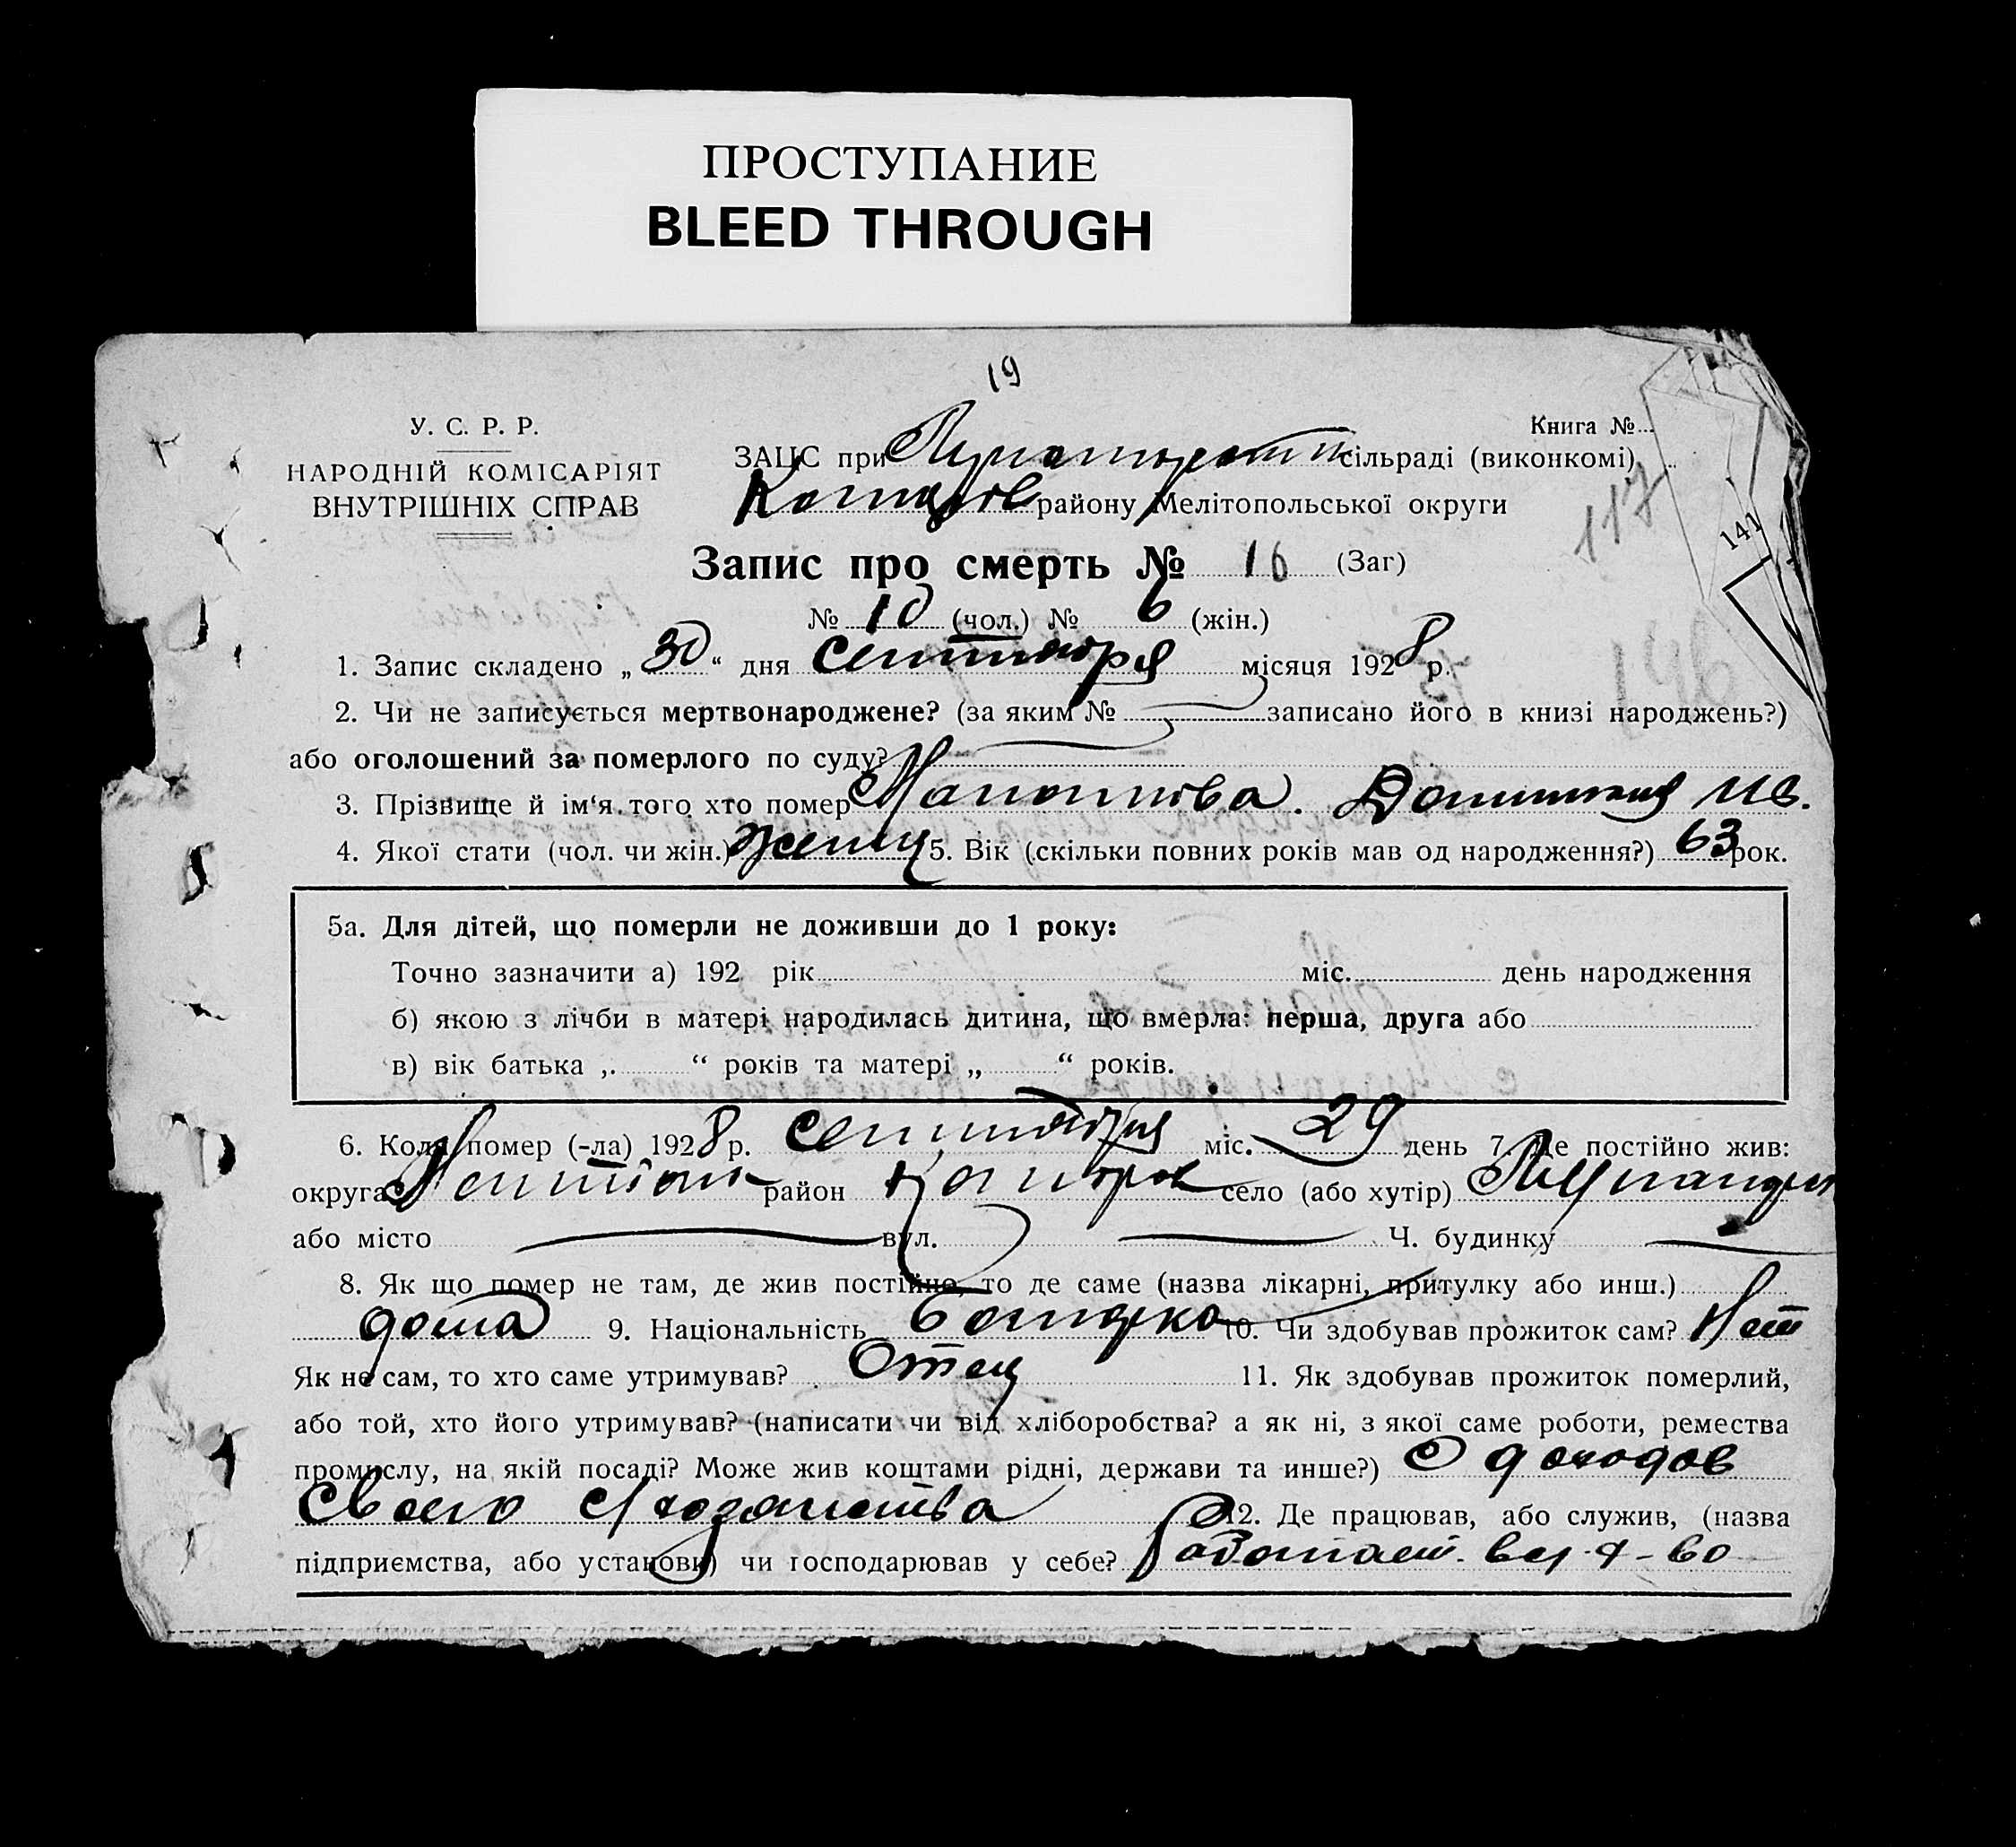 ПРОСТУПАНИЕ
BLEED THROUGH
19
У. С. Р. Р.
НАРОДНІЙ КОМІСАРІЯТ
ВНУТРІШНІХ СПРАВ
Книга №
ЗАЦС при сільраді (виконкомі)
району Мелітопольської округи
117
141
146
Запис про смерть № 16 (Заг)
№ 10 (чол.) № 6 (жін.)
1. Запис складено „30“ дня сентября місяця 1928 р.
2. Чи не записується мертвонароджене? (за яким № записано його в книзі народжень?)
або оголошений за померлого по суду?
3. Прізвище й ім‘я того хто помер Ив.
4. Якої стати (чол. чи жін.) женц 5. Вік (скільки повних років мав од народження?) 63 рок.
5а. Для дітей, що померли не доживши до 1 року:
Точно зазначити а) 192 рік міс. день народження
б) якою з лічби в матері народилась дитина, що вмерла: перша, друга або
в) вік батька „ “ років та матері „ “ років.
6. Коли помер (-ла) 1928 р. сентября міс. 29 день 7. Де постійно жив:
округа район село (або хутір)
або місто вул. Ч. будинку
8. Як що помер не там, де жив постійно, то де саме (назва лікарні, притулку або инш.)
дома 9. Національність Болгарка 10. Чи здобував прожиток сам? Нет
Як не сам, то хто саме утримував? Отец 11. Як здобував прожиток померлий,
або той, хто його утримував? (написати чи від хліборобства? а як ні, з якої саме роботи, ремества
промислу, на якій посаді? Може жив коштами рідні, держави та инше?) С доходов
своего с/хозяйства 12. Де працював, або служив, (назва
підприємства, або установи) чи господарював у себе? Работает